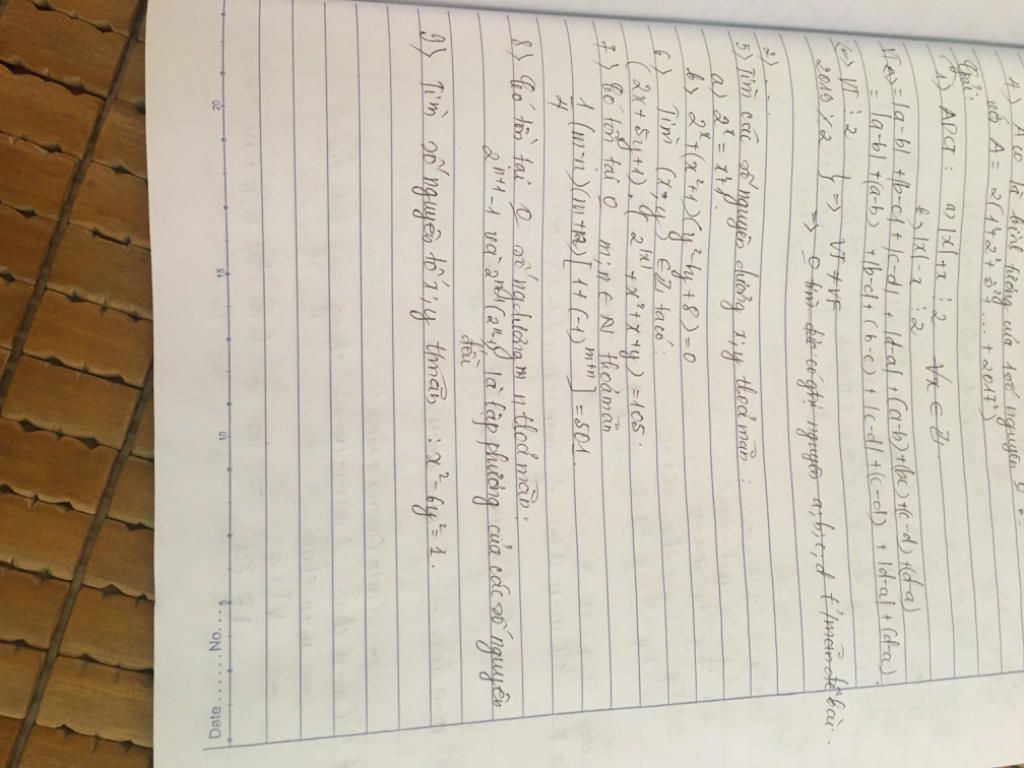 4) A có là bình phương của 1 số nguyên
với A = 2(1+2²+3²+... + 2017²)
Giải:
1) ADCT: a) |x|+x ⋮ 2 ∀x ∈ Z
b) |x|-x ⋮ 2
VT(*) = |a-b| + |b-c| + |c-d| + |d-a| + (a-b) + (b-c) + (c-d) + (d-a)
= |a-b| + (a-b) + |b-c| + (b-c) + |c-d| + (c-d) + |d-a| + (d-a).
(*) VT ⋮ 2
2019 ⋮̸ 2 } => VT ≠ VP
=> 0 tìm đc có giá trị nguyên a, b, c, d t/mãn đề bài.
2) ...
5) Tìm các số nguyên dương x, y thoả mãn:
a) 2ˣ = x^y
b) 2ˣ + (x²+1)(y²-6y+8) = 0
6) Tìm (x,y) ∈ Z ta có:
(2x+5y+1).(2^|x| + x² + x + y) = 105.
7) Có tồn tại 0 m; n ∈ N thoả mãn
1/4 (m-n)(m+n)[1+(-1)^(m+n)] = 501.
8) Có tồn tại 0 số ng.dương n thoả mãn.
2ⁿ⁺¹-1 và là lập phương của các số nguyên
đều
9) Tìm số nguyên tố x; y t/mãn: x²-6y²=1.
Date ........ No. ...
5
10
15
20